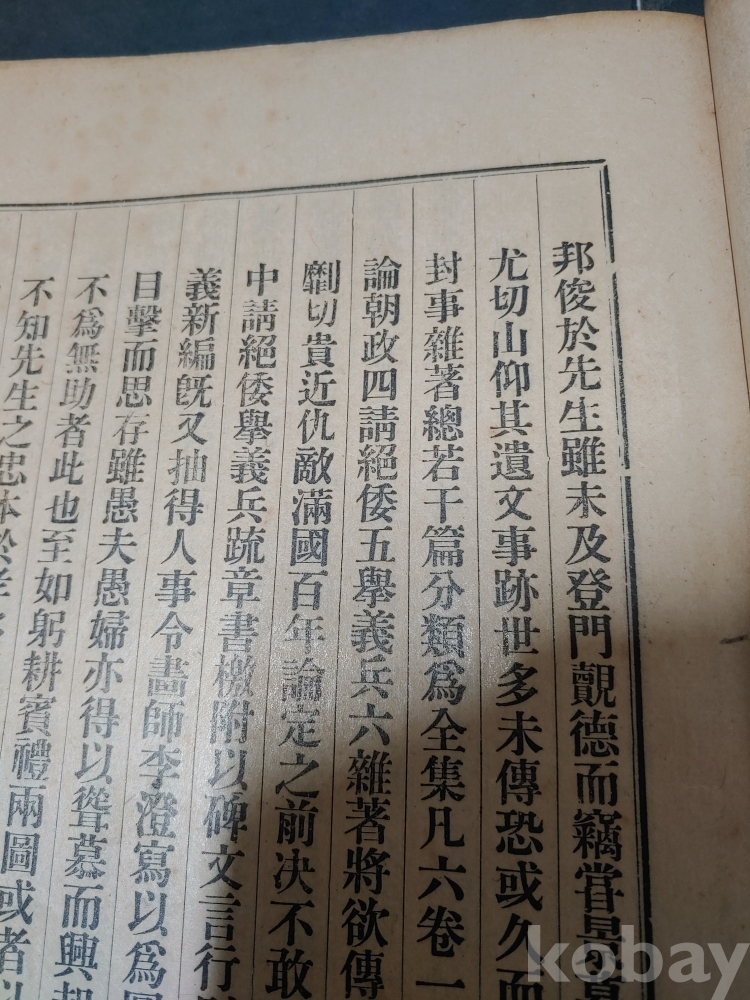 邦俊於先生雖未及登門觀德而竊甞景
尤切山仰其遺文事跡世多未傳恐或久而
封事雜著總若干篇分類爲全集凡六卷一
論朝政四請絕倭五擧義兵六雜著將欲傳
劘切貴近仇敵滿國百年論定之前决不敢
中請絕倭擧義兵䟽章書檄附以碑文言行
義新編旣又抽得人事令畵師李澄寫以爲
目擊而思存雖愚夫愚婦亦得以聳慕而興
不爲無助者此也至如躬耕賓禮兩圖或者以
不知先生之忠本於孝
kobay